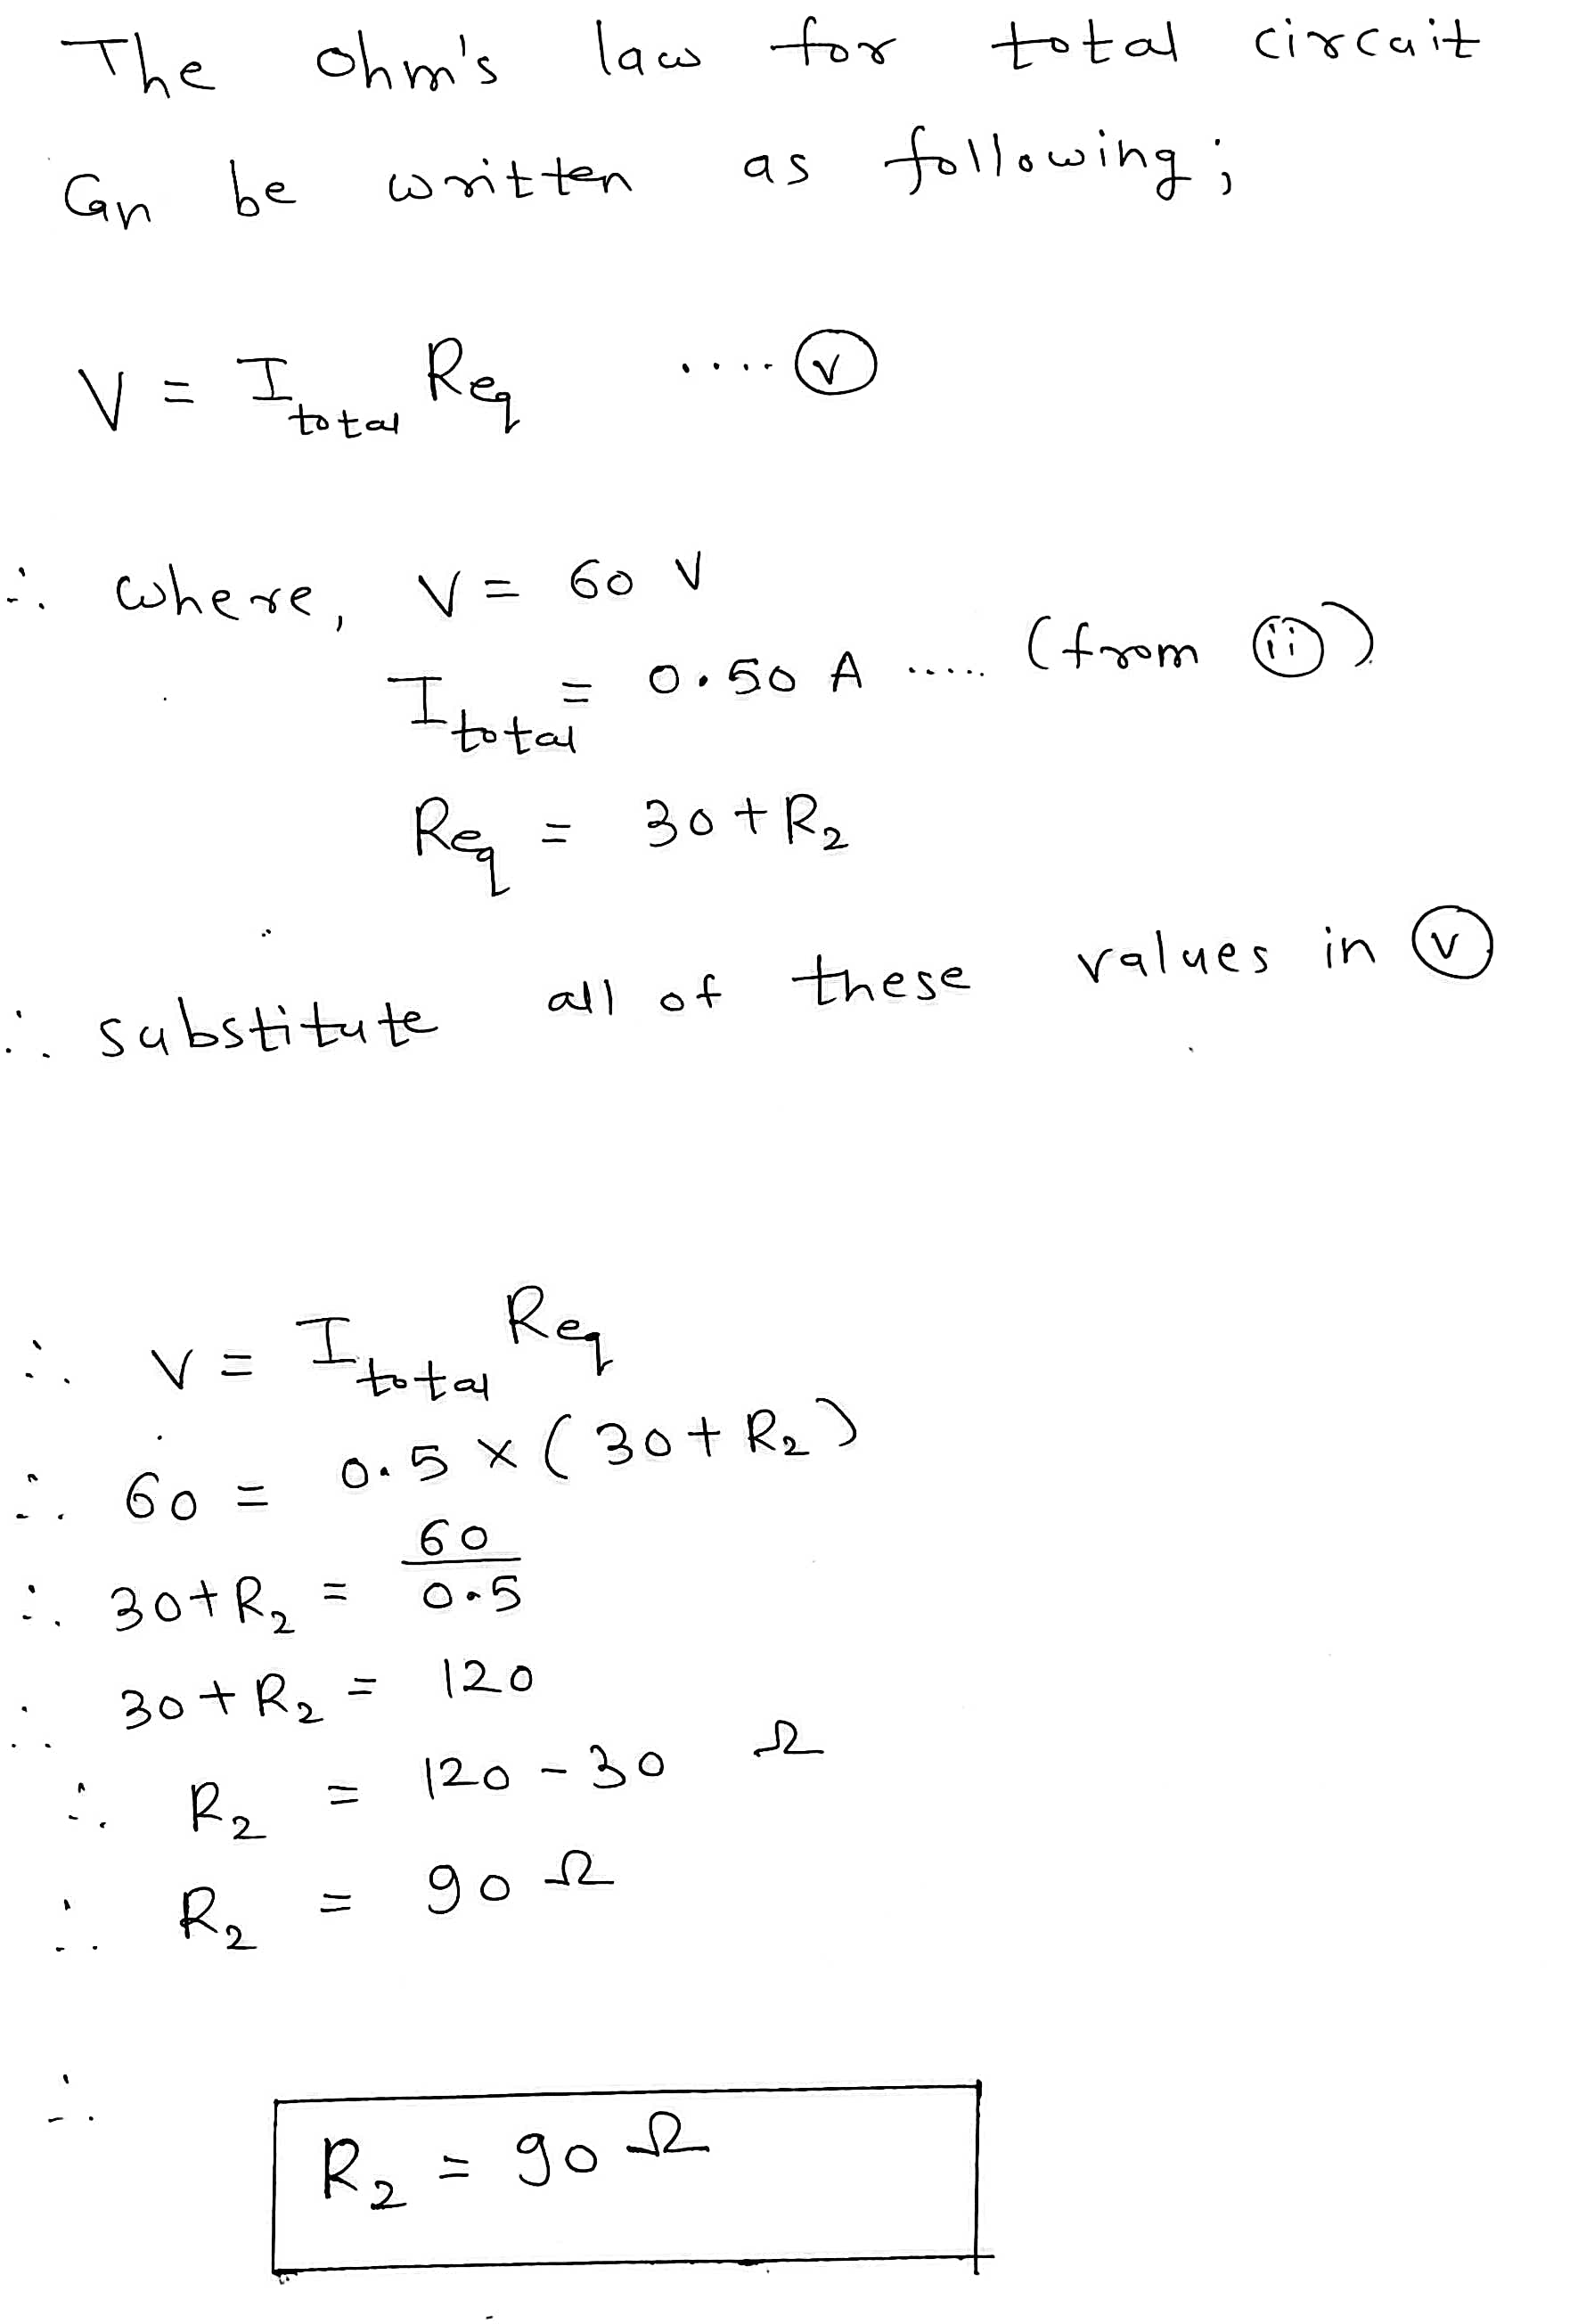 The ohm's law for total circuit
Can be written as following;
V = I total Req ....ⓥ
∴ where, V = 60 V
I total = 0.50 A ..... (from ⓘⓘ)
Req = 30 + R₂
∴ substitute all of these values in ⓥ
∴ V = I total Req
∴ 60 = 0.5 × (30 + R₂)
∴ 30 + R₂ = 60/0.5
∴ 30 + R₂ = 120
∴ R₂ = 120 - 30 Ω
∴ R₂ = 90 Ω
∴ R₂ = 90 Ω